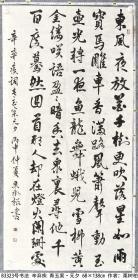 東風夜放花千樹更吹落星如雨
寶馬雕車香滿路鳳簫聲動玉
壺光轉一夜魚龍舞蛾兒雪柳黃
金縷笑語盈盈暗香去衆裏尋他千
百度驀然回首那人却在燈火闌珊處
辛棄疾詞青玉案元夕 丙申仲夏
63323号书法 辛弃疾 青玉案·元夕 68×138cm 作者：